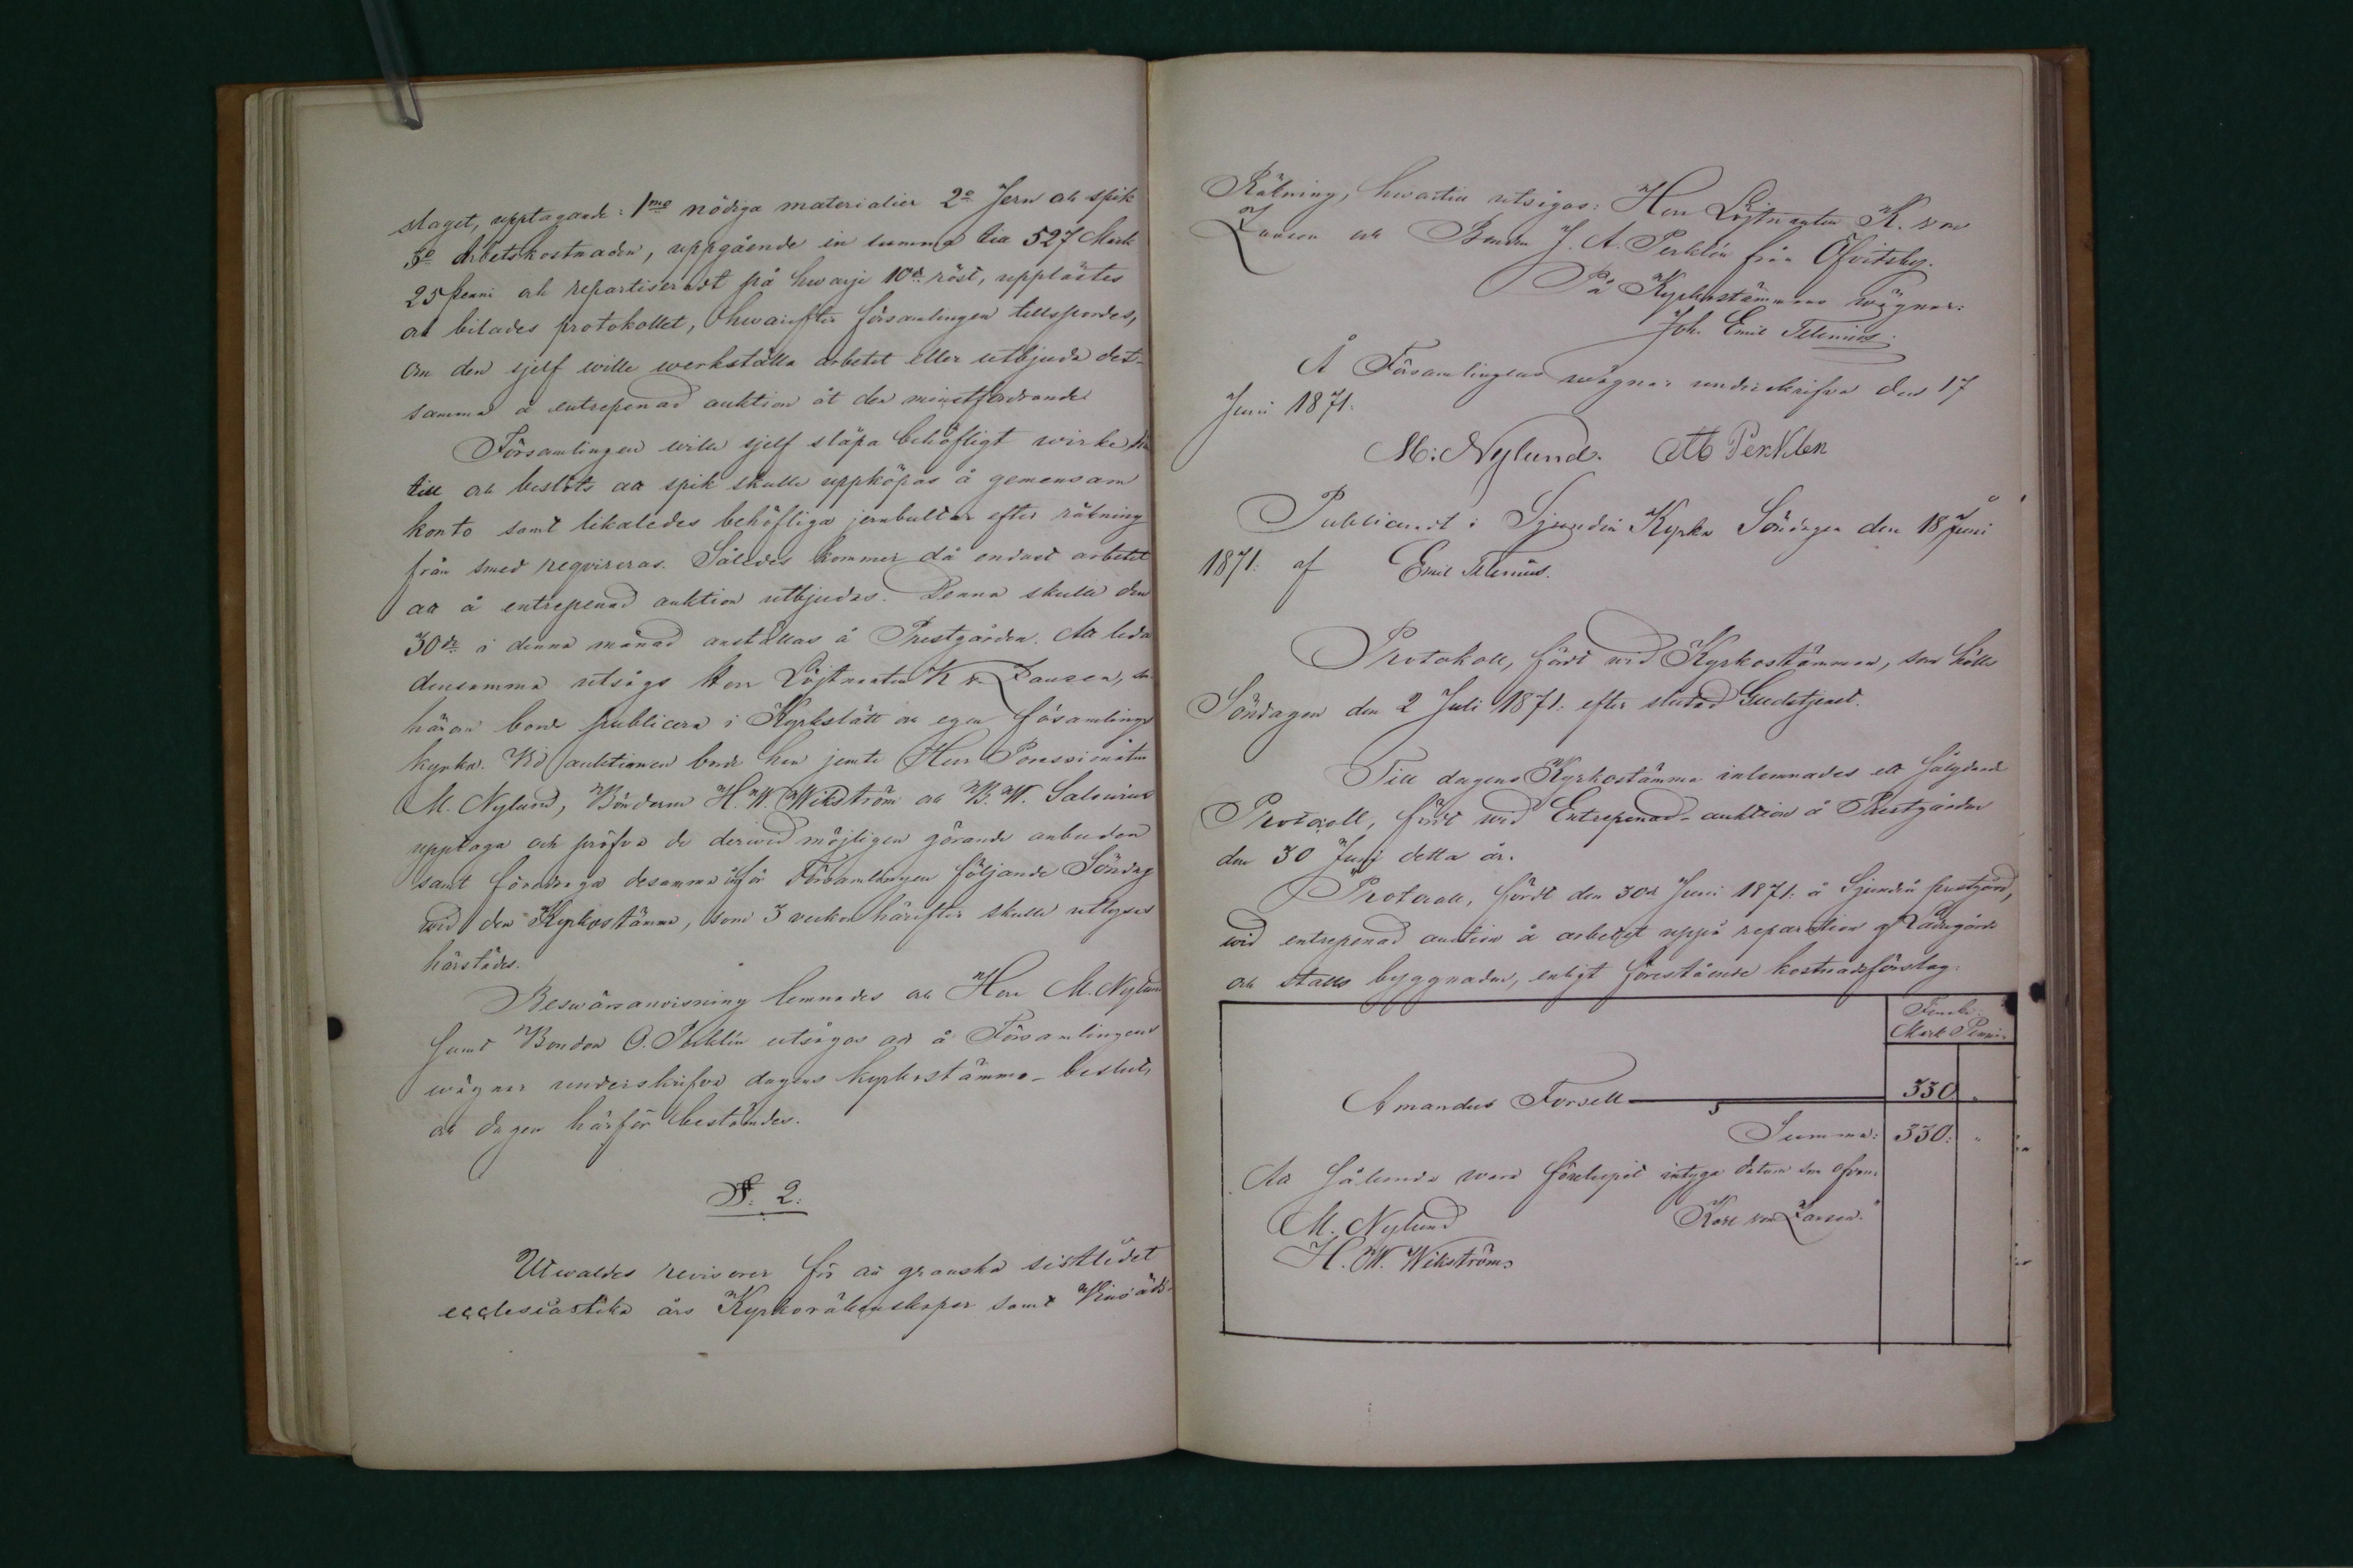 slaget, upptagande: 1mo nödiga materialier 2o Jern och spik
3o Arbetskostnaden, uppgående in summa till 527 Mark
25 penni och repartiseradt på hwarje 10de röst, upplästes
och bilades protokollet, hwarefter församlingen tillspordes,
om den sjelf wille werkställa arbetet eller utbjuda det-
samma å entrepenad auktion åt den minstfordrande
Församlingen wille sjelf släpa behöfligt wirke där
till och beslöts att spik skulle uppköpas å gemensam
konto samt likaledes behöfliga jernbultar efter räkning
från smed reqvireras. Således kommer då endast arbetet
att å entrepenad auktion utbjudas. Denna skulle den
30de i denna månad anställas å Prestgården. Att leda
densamma utsågs Herr Löjtnanten K v. Zansen, som
härom borde publicera i Kyrkslätt och egen församlings
kyrka. Vid auktionen borde han jemte Herr Possessionaten
M. Nylund, Bönderne H. W. Wikström och B. W. Salenius
upptaga och pröfva de derwid möjligen görande anbuden
samt föredraga desamma inför Församlingen följande Söndag
wid den Kyrkostämma, som 3 veckor härefter skulle utlyses
härstädes.
Beswärsanvisning lemnades och Herr M. Nylund
samt Bonden O. Perklén utsågos att å Församlingens
wägnar underskrifva dagens kyrkostämmo-beslut,
och dagen härför bestämdes.
§. 2.
Utvaldes revisorer för att granska sistlidet
ecclesiastika års Kyrkoräkenskaper samt
Räkning, hwartill utsågos: Herr Löjtnanten K. von
Zansen och Bonden J. A. Perklén från Öfvitsby.
På Kyrkostämmans wägnar:
Joh. Emil Telenius.
Å Församlingens wägnar underskrifva den 17
Juni 1871.
M: Nylund. Perklen
Publicerad i Sjundeå Kyrka Söndagen den 18 Juni
1871. af Emil Telenius.
Protokoll, fördt wid Kyrkostämman, som hölls
Söndagen den 2 Juli 1871. efter slutad Gudstjenst.
Till dagens Kyrkostämma inlemnades ett sålydande
Protocoll, fördt wid Entrepenad-auktion å Prestgården
den 30 Juni detta år.
"Protocoll, fördt den 30de Juni 1871. å Sjundeå prestgård,
wid entrepenad auction å arbetet uppå reparation af Ladugårds
och stalls byggnader, enligt förestående kostnadsförslag.
Finska
Mark Penni.
Amandus Forsell 330 "
Summa: 330: "
Att sålunda ware förelupit intyga datum som ofvan.
M. Nylund Karl von Zansen."
H. W. Wikström.